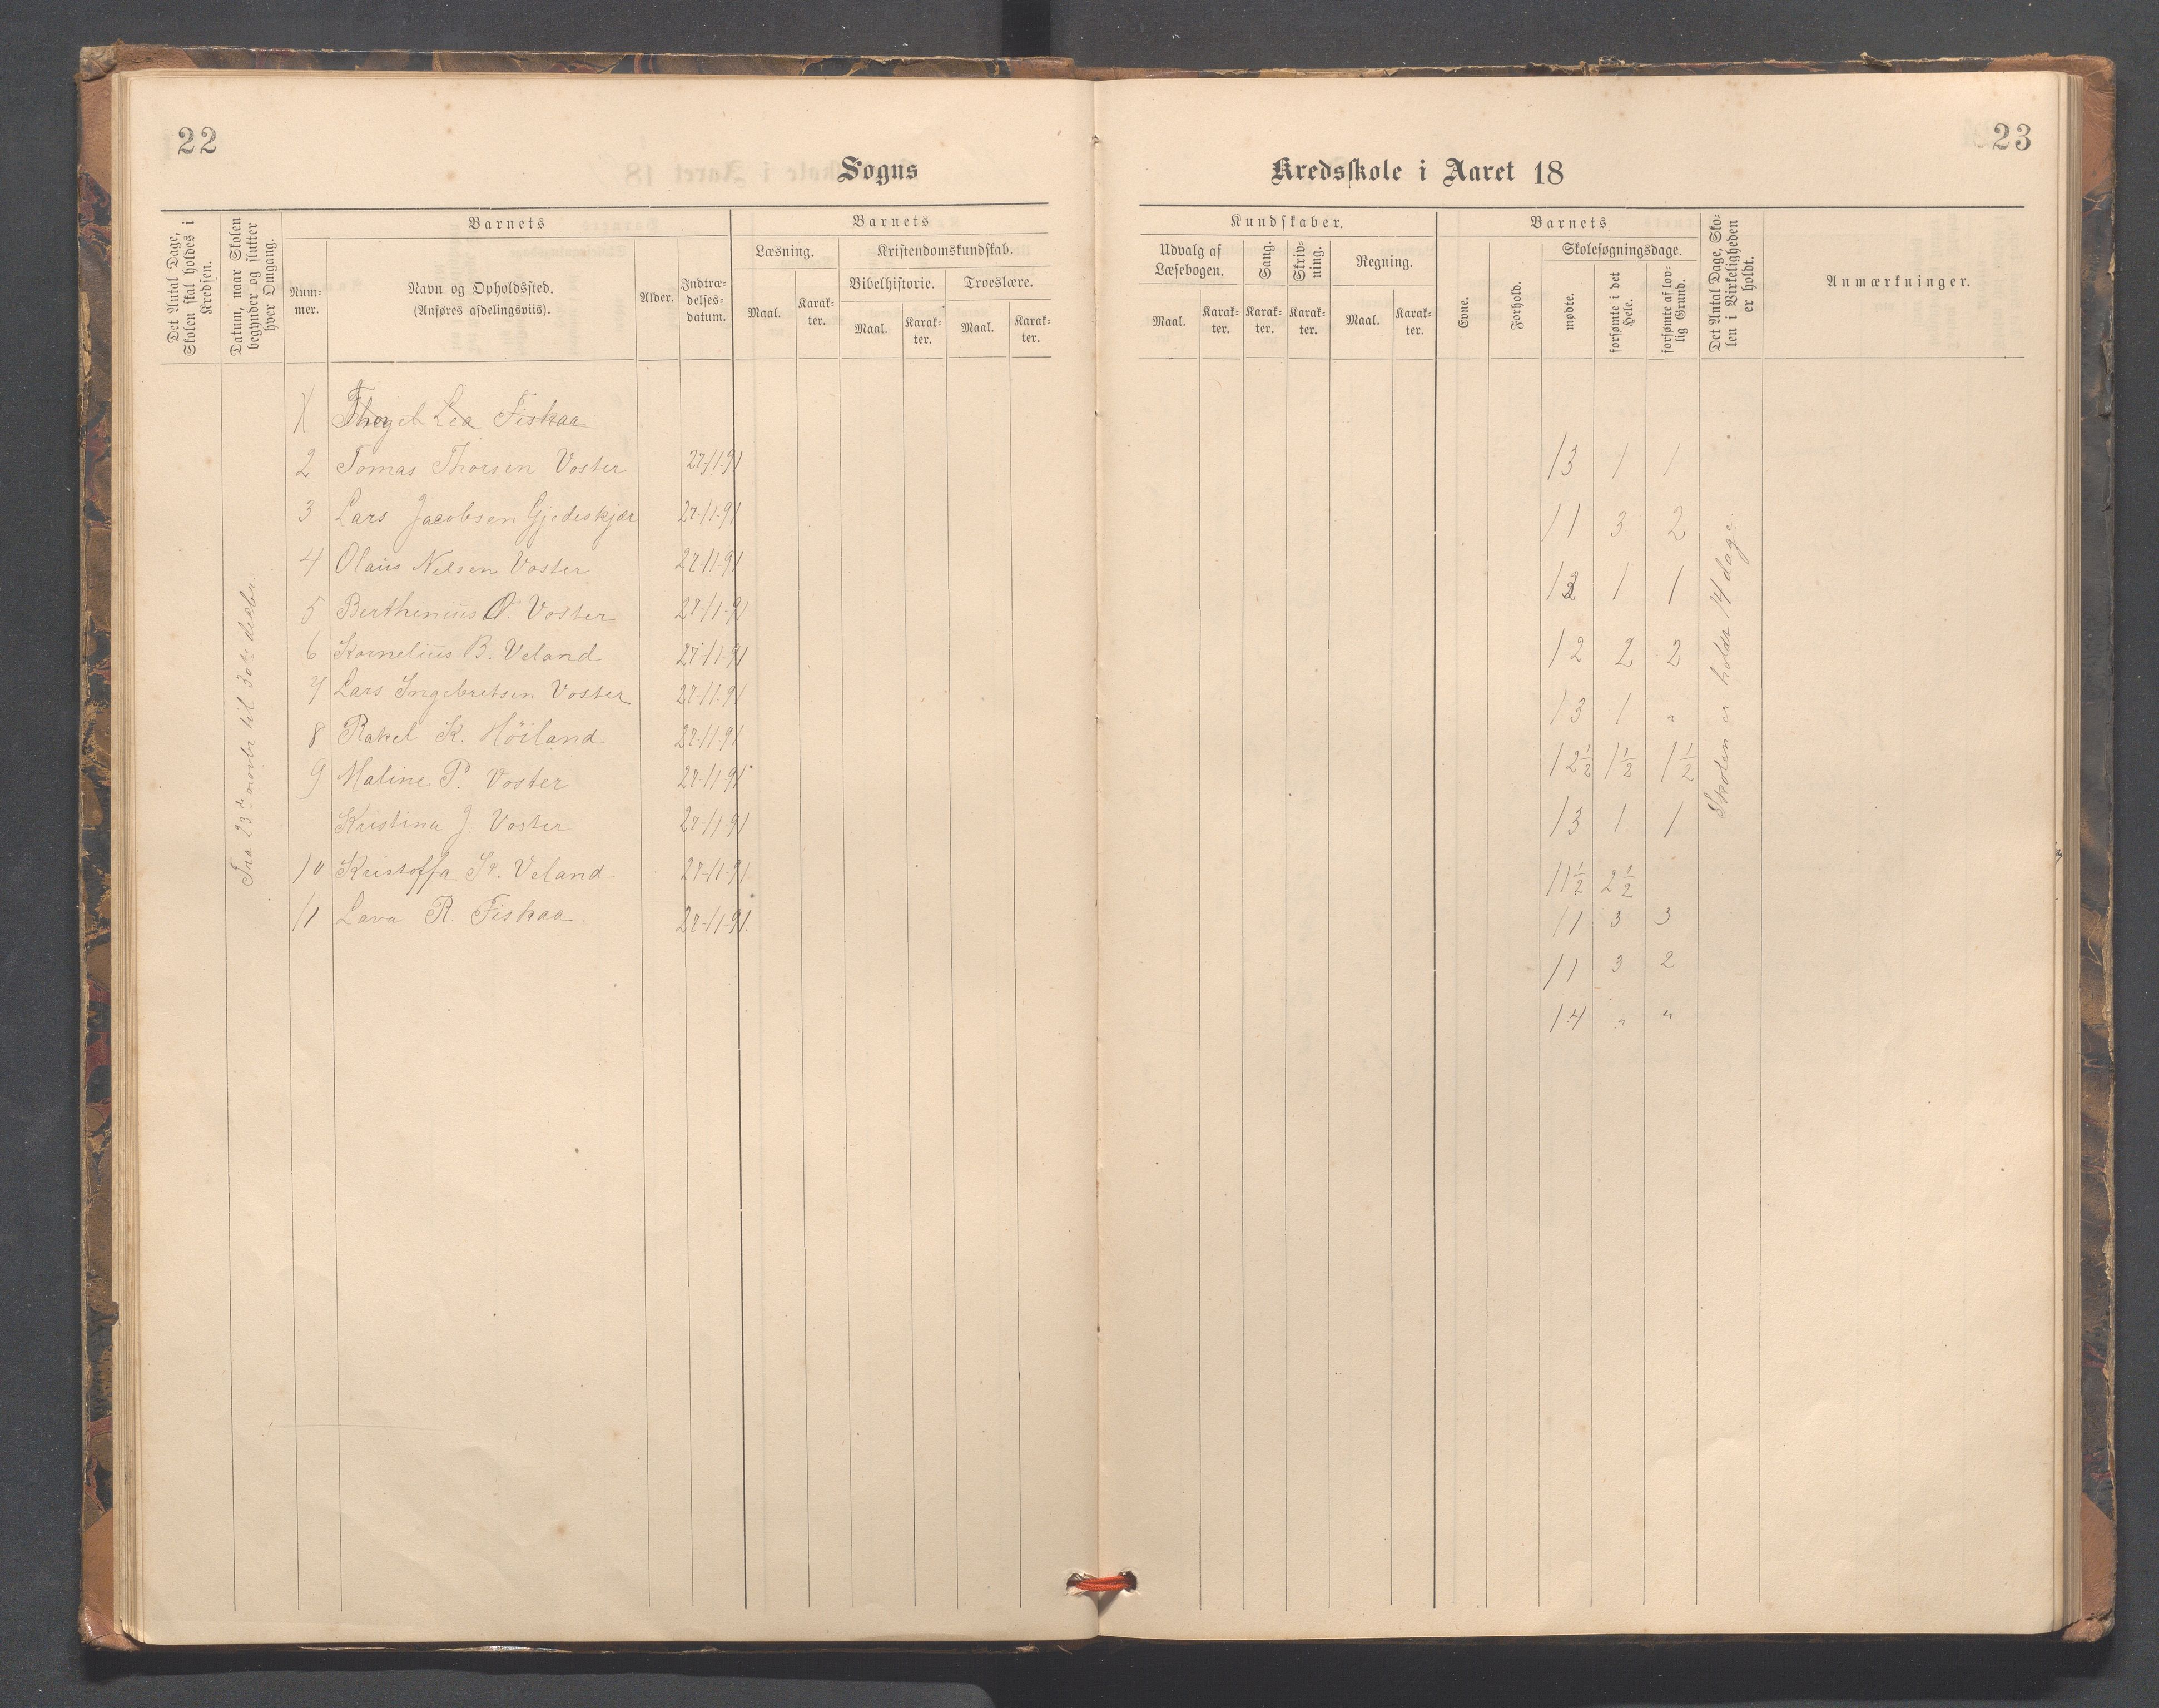 22
Sogns
Det Antal Dage, Skolen skal holdes i Kredsen.
Datum, naar Skolen begynder og slutter hver Omgang.
Barnets
Nummer.
Navn og Opholdssted.
(Anføres afdelingsviis).
Alder.
Indtrædelsesdatum.
Barnets
Læsning.
Kristendomskundskab.
Bibelhistorie.
Troeslære.
Maal.
Karakter.
Maal.
Karakter.
Maal.
Karakter.
Fra 23de novbr til 30te decbr
Lea Fiskaa
2 Tomas Thorsen Voster 27-11-91
3 Lars Jacobsen Gjedeskjær 27-11-91
4 Olaus Nelsen Voster 27-11-91
5 Berthinius O. Voster 27-11-91
6 Kornelius B. Veland 27-11-91
7 Lars Ingebretsen Voster 27-11-91
8 Rakel K. Höiland 27-11-91
9 Maline P. Voster 27-11-91
Kristina J. Voster 27-11-91
10 Kristoffa Veland 27-11-91
11 Lava R Fiskaa. 27-11-91.
23
Kredsskole i Aaret 18
Kundskaber.
Udvalg af Læsebogen.
Sang.
Skrivning.
Regning.
Maal.
Karakter.
Karakter.
Karakter.
Maal.
Karakter.
Barnets
Evne.
Forhold.
Skolesøgningsdage.
mødte.
forsømte i det Hele.
forsømte af lovlig Grund.
Det Antal Dage, Skolen i Virkeligheden er holdt.
Anmærkninger.
13 1 1
11 3 2
13 1 1
12 2 2
13 1 "
12½ 1½ 1½
13 1 1
11½ 2½
11 3 3
11 3 2
14 " "
Skolen er holdt 14 dage.